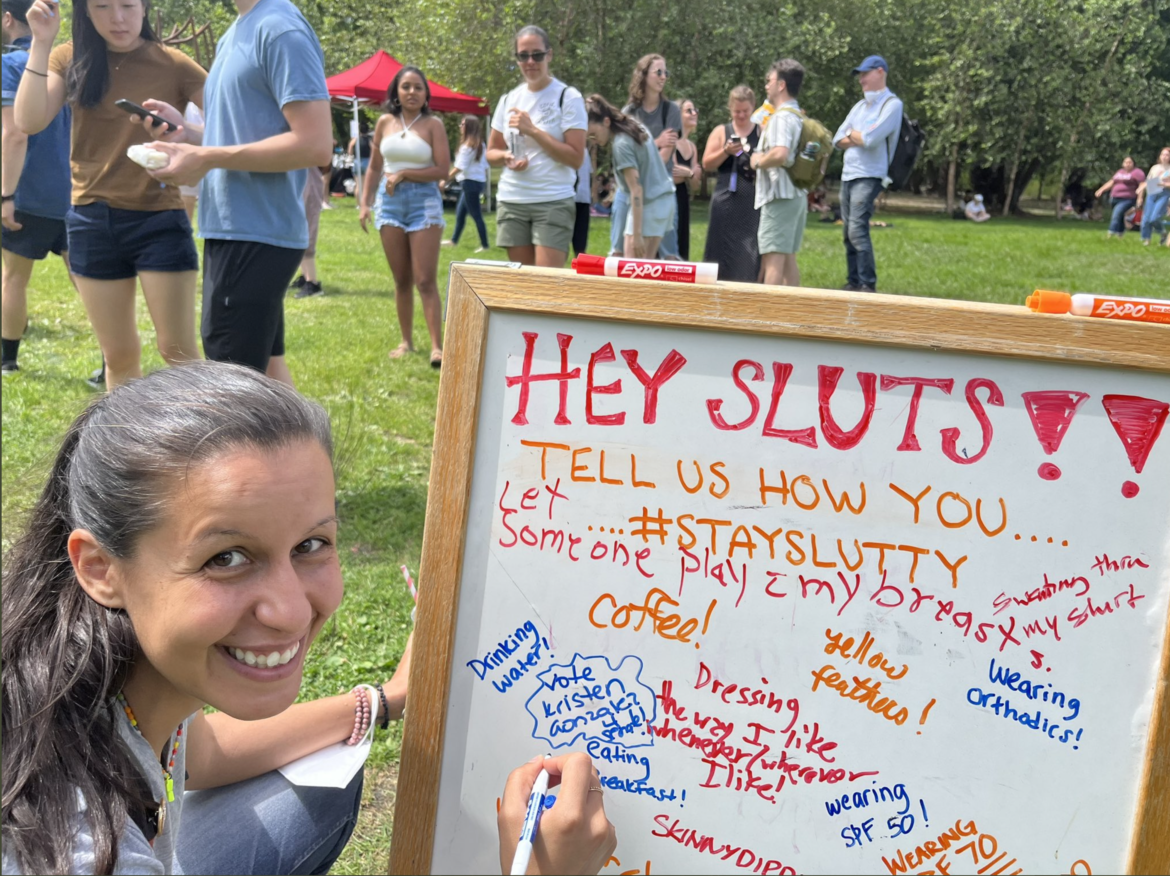 EXPO
EXPO
HEY SLUTS!!
TELL US HOW YOU....
....#STAYSLUTTY
Let
someone play c my breasts.
Sweating thru
my shirt
Coffee!
Drinking
water!
yellow
feathers!
Wearing
orthodics!
Vote
kristen
Gonzalez
senate!
Dressing
the way I like
whenever/wherever
I like!
eating
breakfast!
wearing
SPF 50!
SKINNYDIPP
WEARING
70